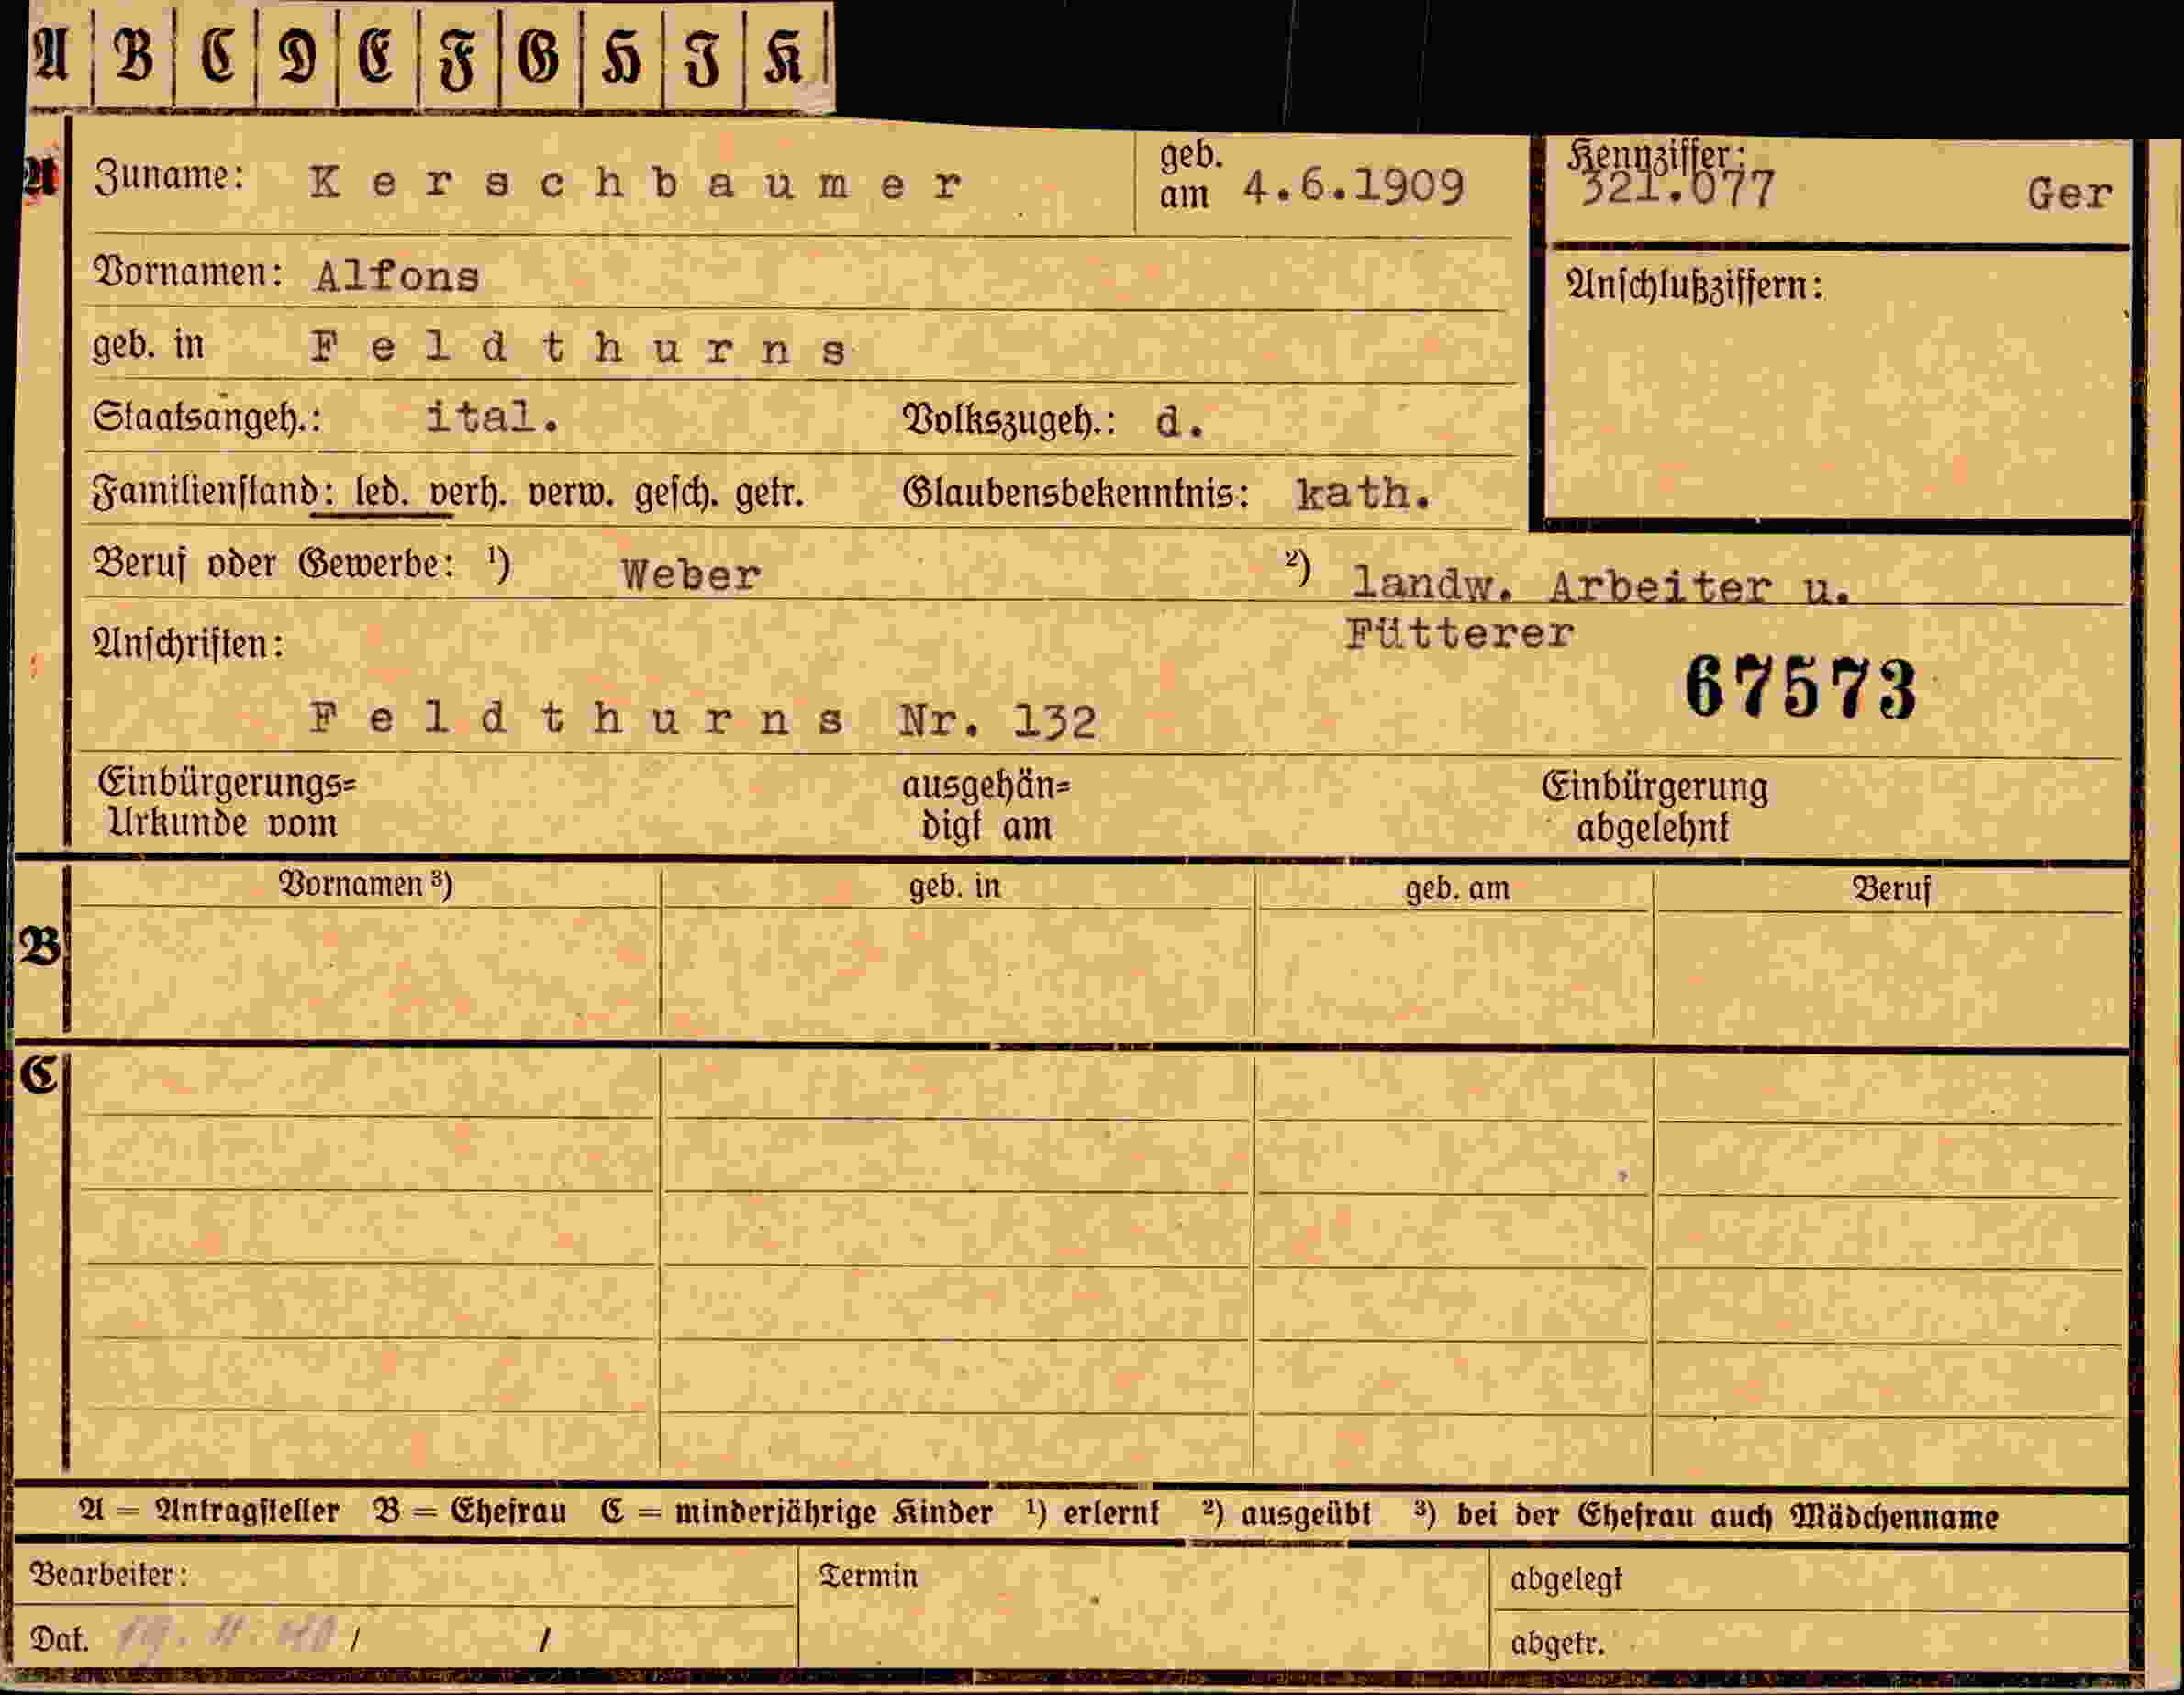 A B C D E F G H J K
A Zuname: Kerschbaumer geb. am 4.6.1909 Kennziffer: 321.077 Ger
Vornamen: Alfons Anschlußziffern:
geb. in Feldthurns
Staatsangeh.: ital. Volkszugeh.: d.
Familienstand: led. verh. verw. gesch. getr. Glaubensbekenntnis: kath.
Beruf oder Gewerbe: ¹) Weber ²) landw. Arbeiter u.
Fütterer
Anschriften:
67573
Feldthurns Nr. 132
Einbürgerungs= ausgehän= Einbürgerung
Urkunde vom digt am abgelehnt
Vornamen ³) geb. in geb. am Beruf
B
C
A = Antragsteller B = Ehefrau C = minderjährige Kinder ¹) erlernt ²) ausgeübt ³) bei der Ehefrau auch Mädchenname
Bearbeiter: Termin abgelegt
Dat. / / abgetr.